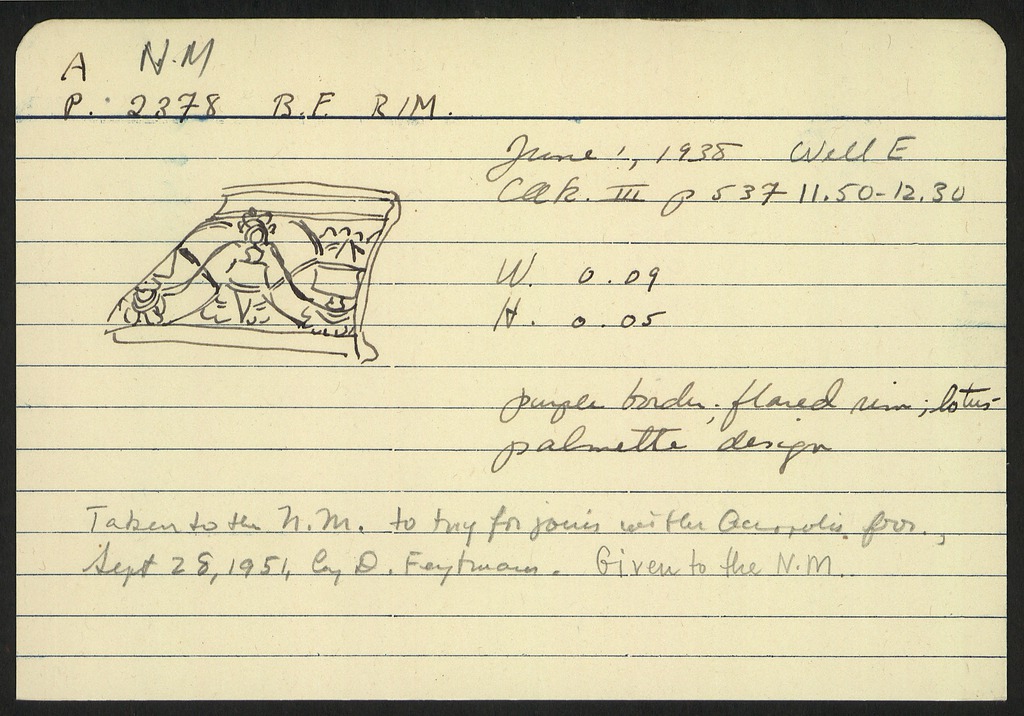 A N.M
P. 2378 B.F. RIM.
June 1, 1938 Well E
III p 537 11.50-12.30
W. 0.09
H. 0.05
purple border; flared rim; lotus-
palmette design
Taken to the N.M. to try for joins with Acropolis
Sept 28, 1951, by D. Feytmans. Given to the N.M.